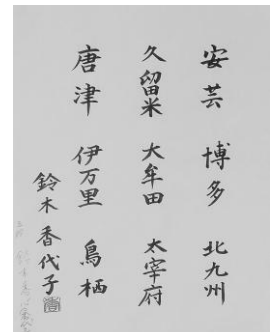 安芸 博多 北九州
久留米 大牟田 太宰府
唐津 伊万里 鳥栖
鈴木香代子